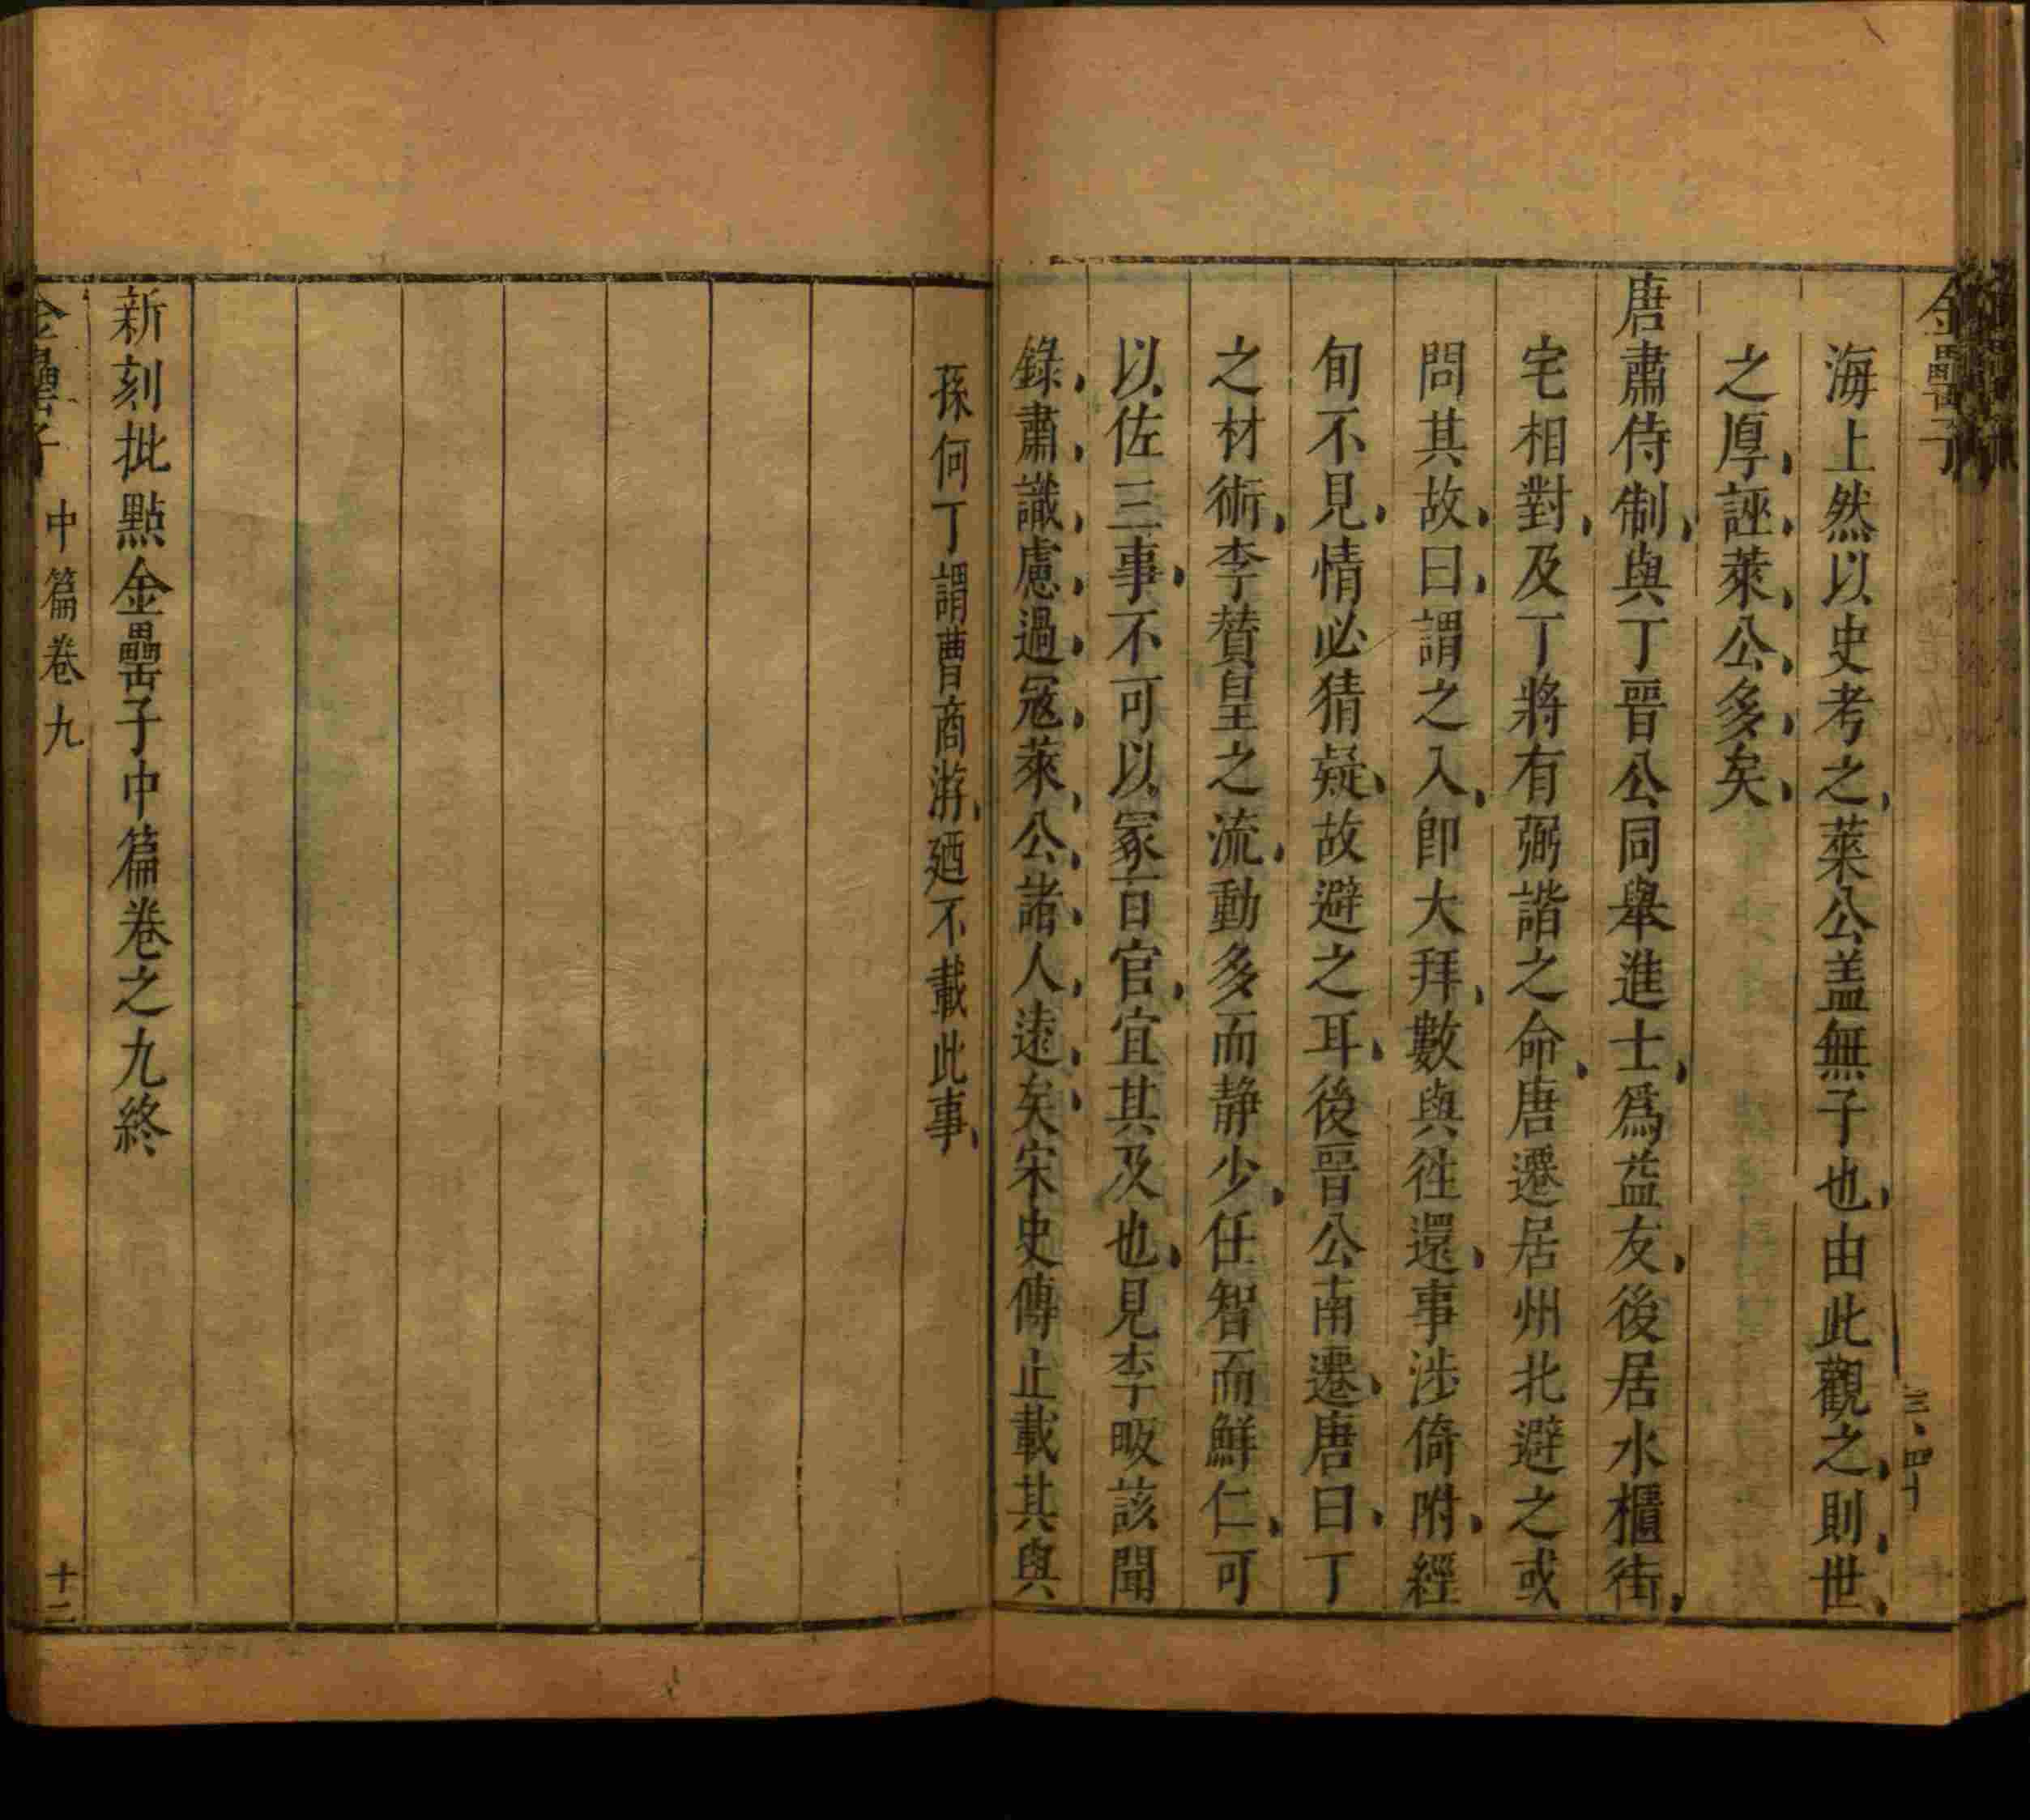 金罍子
三、四十
海上然以史考之萊公盖無子也由此觀之則世
之厚誣萊公多矣
唐肅侍制與丁晉公同舉進士爲益友後居水櫃街
宅相對及丁將有弼諧之命唐遷居州北避之或
問其故曰謂之入即大拜數與往還事涉倚附經
旬不見情必猜疑故避之耳後晉公南遷唐曰丁
之材術李贊皇之流動多而静少任智而鮮仁可
以佐三事不可以冢百官宜其及也見李畋該聞
錄肅識慮過冦萊公諸人遠矣宋史傳止載其與
孫何丁謂曹商游廼不載此事
新刻批點金罍子中篇卷之九終
金罍子 中篇卷九 十二